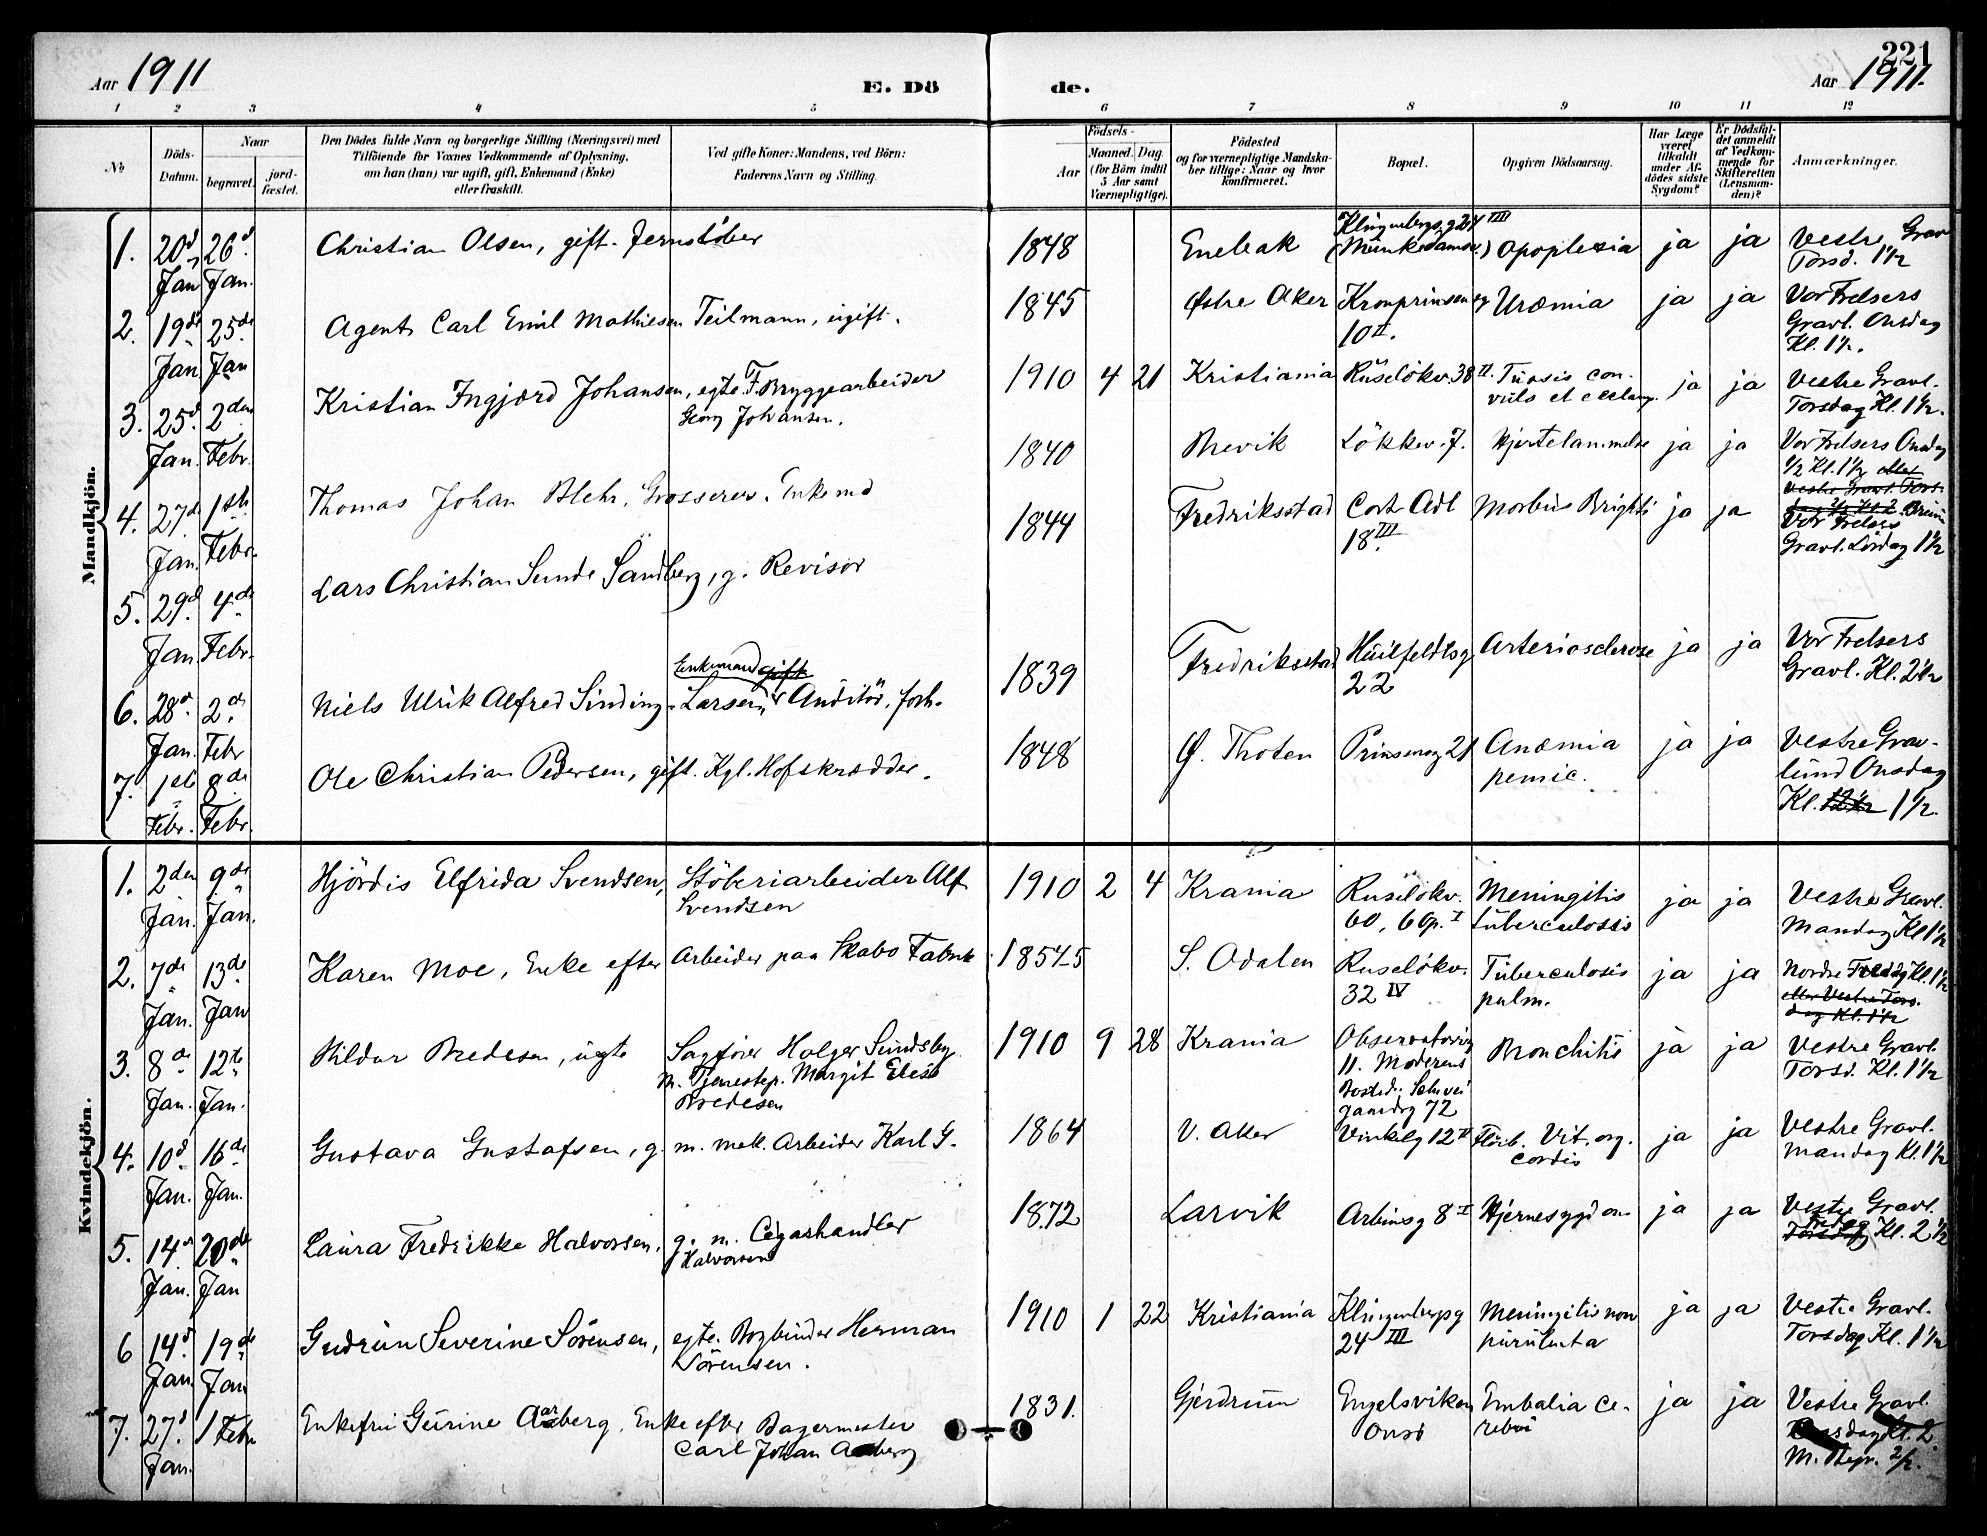 Aar 1911
E. Dö
de.
221
Aar 1911.
1 2 3 4 5 6 7 8 9 10 11 12
No
Döds-Datum.
Naar
begravet.
jord-fæstet.
Den Dödes fulde Navn og borgerlige Stilling (Næringsvei) med
Tilföiende for Voxnes Vedkommende af Oplysning,
om han (hun) var ugift, gift, Enkemand (Enke)
eller fraskilt.
Ved gifte Koner: Mandens, ved Börn:
Faderens Navn og Stilling.
Födsels-
Aar
Maaned. Dag.
(for Börn indtil
5 Aar samt
Værnepligtige).
Födested
og for værnepligtige Mandska-
ber tillige: Naar og hvor
konfirmeret.
Bopæl.
Opgiven Dödsaarsag.
Har Læge
været
tilkaldt
under Af-
dödes sidste
Sygdom?
Er Dödsfal-
det anmeldt
af Vedkom-
mende for
Skifteretten
(Lensman-
den)?
Anmærkninger.
Mandkjön.
1. 20d Jan 26d Jan. Christian Olsen, gift. Jernstöber 1848 Enebak Klingenbergsg 24 III (Munkedamsv.) Apoplexia ja ja Vestre Grav Torsd. 1½
2. 19de Jan. 25de Jan Agent Carl Emil Mathiesen Teilmann, ugift. 1845 Østre Aker Kronprinsensg 10 II. Uræmia ja ja Vor Frelsers Gravl. Onsdag Kl. 1½.
3. 25d Jan. 2den Febr. Kristian Ingjærd Johansen, egte. F. Bryggearbeider Georg Johansen. 1910 4 21 Kristiania Ruselökv. 38 II. Tussis con-vuls et eclamp. ja ja Vestre Gravl. Torsdag Kl. 1½.
4. 27d Jan. 1ste Febr. Thomas Johan Blehr, Grosserer. Enkemd 1840 Brevik Lökkev. 7. Hjertelammelse ja ja Vor Frelsers Onsdag ½ Kl. 1½ eller Vestre Gravl. Tors-
5. 29d Jan. 4de Febr. Lars Christian Sunde Sandberg, g. Revisor 1844 Fredriksstad Cort Adl 18 III. Morbus Brighti ja ja Vor Frelsers Gravl. Lördag 1½
6. 28d Jan. 2d Febr Niels Ulrik Alfred Sinding-Larsen, Enkemand gift Auditör, forh. 1839 Fredriksstad Huilfeldtsg 22 Arteriosclerose ja ja Vor Frelsers Gravl. Kl. 2½
7. 1ste Febr. 8de Febr. Ole Christian Pedersen, gift. Kgl. Hofskrædder. 1848 Ø. Thoten Prinsensg 21 Anæmia pernic. ja ja Vestre Grav-lund Onsdag Kl. 12½ 1½.
Kvindekjön.
1. 2den Jan. 9de Jan. Hjördis Elfrida Svendsen, Stöberiarbeider Alf Svendsen 1910 2 4 Krania Ruselökv. 60, 6 Op. I Meningitis tuberculosis ja ja Vestre Gravl. Mandag Kl 1½
2. 7de Jan. 13de Jan Karen Moe, Enke efter Arbeider paa Skabo Fabrik 1854-5 S. Odalen Ruselökv. 32 IV Tuberculosis pulm. ja ja Nordre Fredag Kl. 1½ eller Vestre Tors-dag Kl. 1½
3. 8de Jan. 12te Jan. Hildur Bredesen, uegte Sagförer Holger Sundsby. m. Tjenestep. Margit Elise Bredesen 1910 9 28 Krania Observatorieg 11. Moderens Bosted: Schwei gaardsg 72 Bronchitis ja ja Vestre Gravl. Torsd. Kl. 1½
4. 10d Jan. 16de Jan. Gustava Gustafsen, g. m. mek. Arbeider Karl G. 1864 V. Aker Vinkelg 12 II Vit. org. cordis ja ja Vestre Gravl. Mandag Kl. 1½
5. 14d Jan. 20de Jan Laura Fredrikke Halvorsen, g. m. Cigarhandler Halvorsen 1872 Larvik Arbinsg 8 I Hjernesygdom ja ja Vestre Gravl. Torsdag Fredag Kl. 2½
6 14d Jan. 19de Jan Gudrun Severine Sörensen, egte. Bogbinder Herman Sörensen. 1910 1 22 Kristiania Klingenbergsg 24 III Meningitis non purulenta ja ja Vestre Gravl. Torsdag Kl. 1½
7. 27d Jan. 1 Febr Enkefru Gurine Aaberg, Enke efter Bagermester Carl Johan Aaberg 1831. Gjerdrum Engelsviken Onsö Embolia ce-rebri ja ja Vestre Gravl. Onsdag Kl. 2